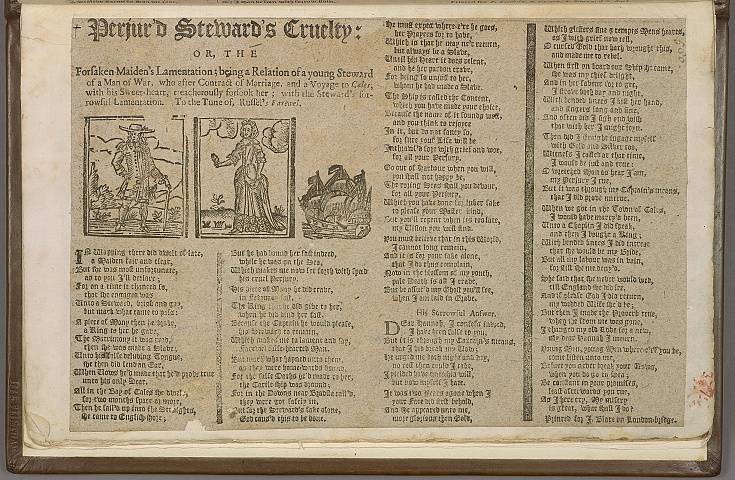 Perjur'd Steward's Cruelty:
OR, THE
Forsaken Maiden's Lamentation; being a Relation of a young Steward
of a Man of War, who after Contract of Marriage, and a Voyage to Cales,
with his Sweet-heart, treacherously forsook her; with the Steward's sor-
rowful Lamentation. To the Tune of, Russel's Farewel.
IN Wapping there did dwell of late,
a Maiden fair and clear,
But she was most unfortunate,
as to you I'll declare;
For on a time it chanced so,
that she engaged was
Unto a Steward, brisk and gay,
but mark what came to pass:
A piece of Mony then he broke,
a Ring to her he gave,
The Matrimony it was read,
then she was made a Slave;
Unto his false deluding Tongue,
she then did lend an Ear,
When Vows he'd made that he'd prove true
unto his only Dear.
All in the Bay of Cales she dwelt,
for two months space or more,
Then he sail'd up into the Streights,
she came to English shore;
But he had bound her fast indeed,
while he was on the Sea,
Which makes me now for to
his cruel Perjury.
His piece of Mony he did crave,
in February last,
The Ring that he did give to her,
when he did bind her fast.
Because the Captain he would please,
his Steward to remain,
Which makes me to lament and say,
Farewel false-hearted Man.
But mark what hapned unto them,
as they were home-wards bound,
For the false Oaths he'd made to her,
the Carlile ship was drownd;
For in the Downs near
they were got safely in,
But for the Steward's sake alone,
God caus'd this to be done.
He must expect where-e're he goes,
her Prayers for to have,
Which is that he may ne'r return,
but always be a Slave,
Until his Heart it does relent,
and he her pardon crave,
For being so unjust to her,
whom he had made a Slave.
The Ship is called the Content,
which you have made your choice,
Because the name of it sounds well,
and you think to rejoyce
In it, but do not fancy so,
for sure your Life will be
Inthraul'd for with grief and woe,
for all your Perjury.
Go out of Harbour when you will,
you shall not happy be,
The roging Seas shall you devour,
for all your Perjury,
Which you have done for lukar sake
to please your Master kind,
But you'll repent when its too late,
my Vision you will find.
You must believe that in this World,
I cannot long remain,
And it is for your sake alone,
that I do thus complain,
Now in the blossom of my youth,
pale Death is all I crave,
But be assur'd my Ghost you'll see,
when I am laid in Grave.
His Sorrowful Answer.
DEar Hannah, I confess indeed,
I have been false to you,
But it is through my Captain's means,
that I did break my Vow;
He urged me both night and day,
no rest then could I take,
I yielded have unto his will,
but now my self I hate.
It was two years agone when I
your Face did first behold,
And she appeared unto me,
more glorious then Gold,
Which glisters fine & tempts Mens hearts,
as I with grief now tell,
O cursed Gold that hath wrought this,
and made me to rebel.
When first on board our Ship she came,
she was my chief delight,
And in her favour for to get,
I strove both day and night,
With bended knees I kist her hand,
and Fingers long and fine,
And often did I sigh and wish
that with her I might joyn.
Then did I straight engage my self
with Gold and Silver too,
Witness I called at that time,
I would be just and true:
O wretched Man as here I am,
my Perjury I rue,
But it was through my Captain's means,
that I did prove untrue.
When we got in the Town of Cales,
I would have marry'd been,
Unto a Chaplin I did speak,
and then I bought a Ring;
With bended knees I did intreat
that she would be my Bride,
But all my labour was in vain,
for still she me deny'd.
She said that she never would wed,
till England she did see,
And if please God I did return,
my wedded Wife she'd be;
But then I made the Proverb true,
when she from me was gone,
I changed my old Love for a new,
my dear Hannah I mourn.
Young Men, young Men where-e'er you be,
come listen unto me,
Before you never break your Vows,
when you do go to Sea;
Be constant in your promises,
lest afterwards you rue,
As I here cry, My misery
is great, what shall I do?
Printed for J. Blare on London-bridge.